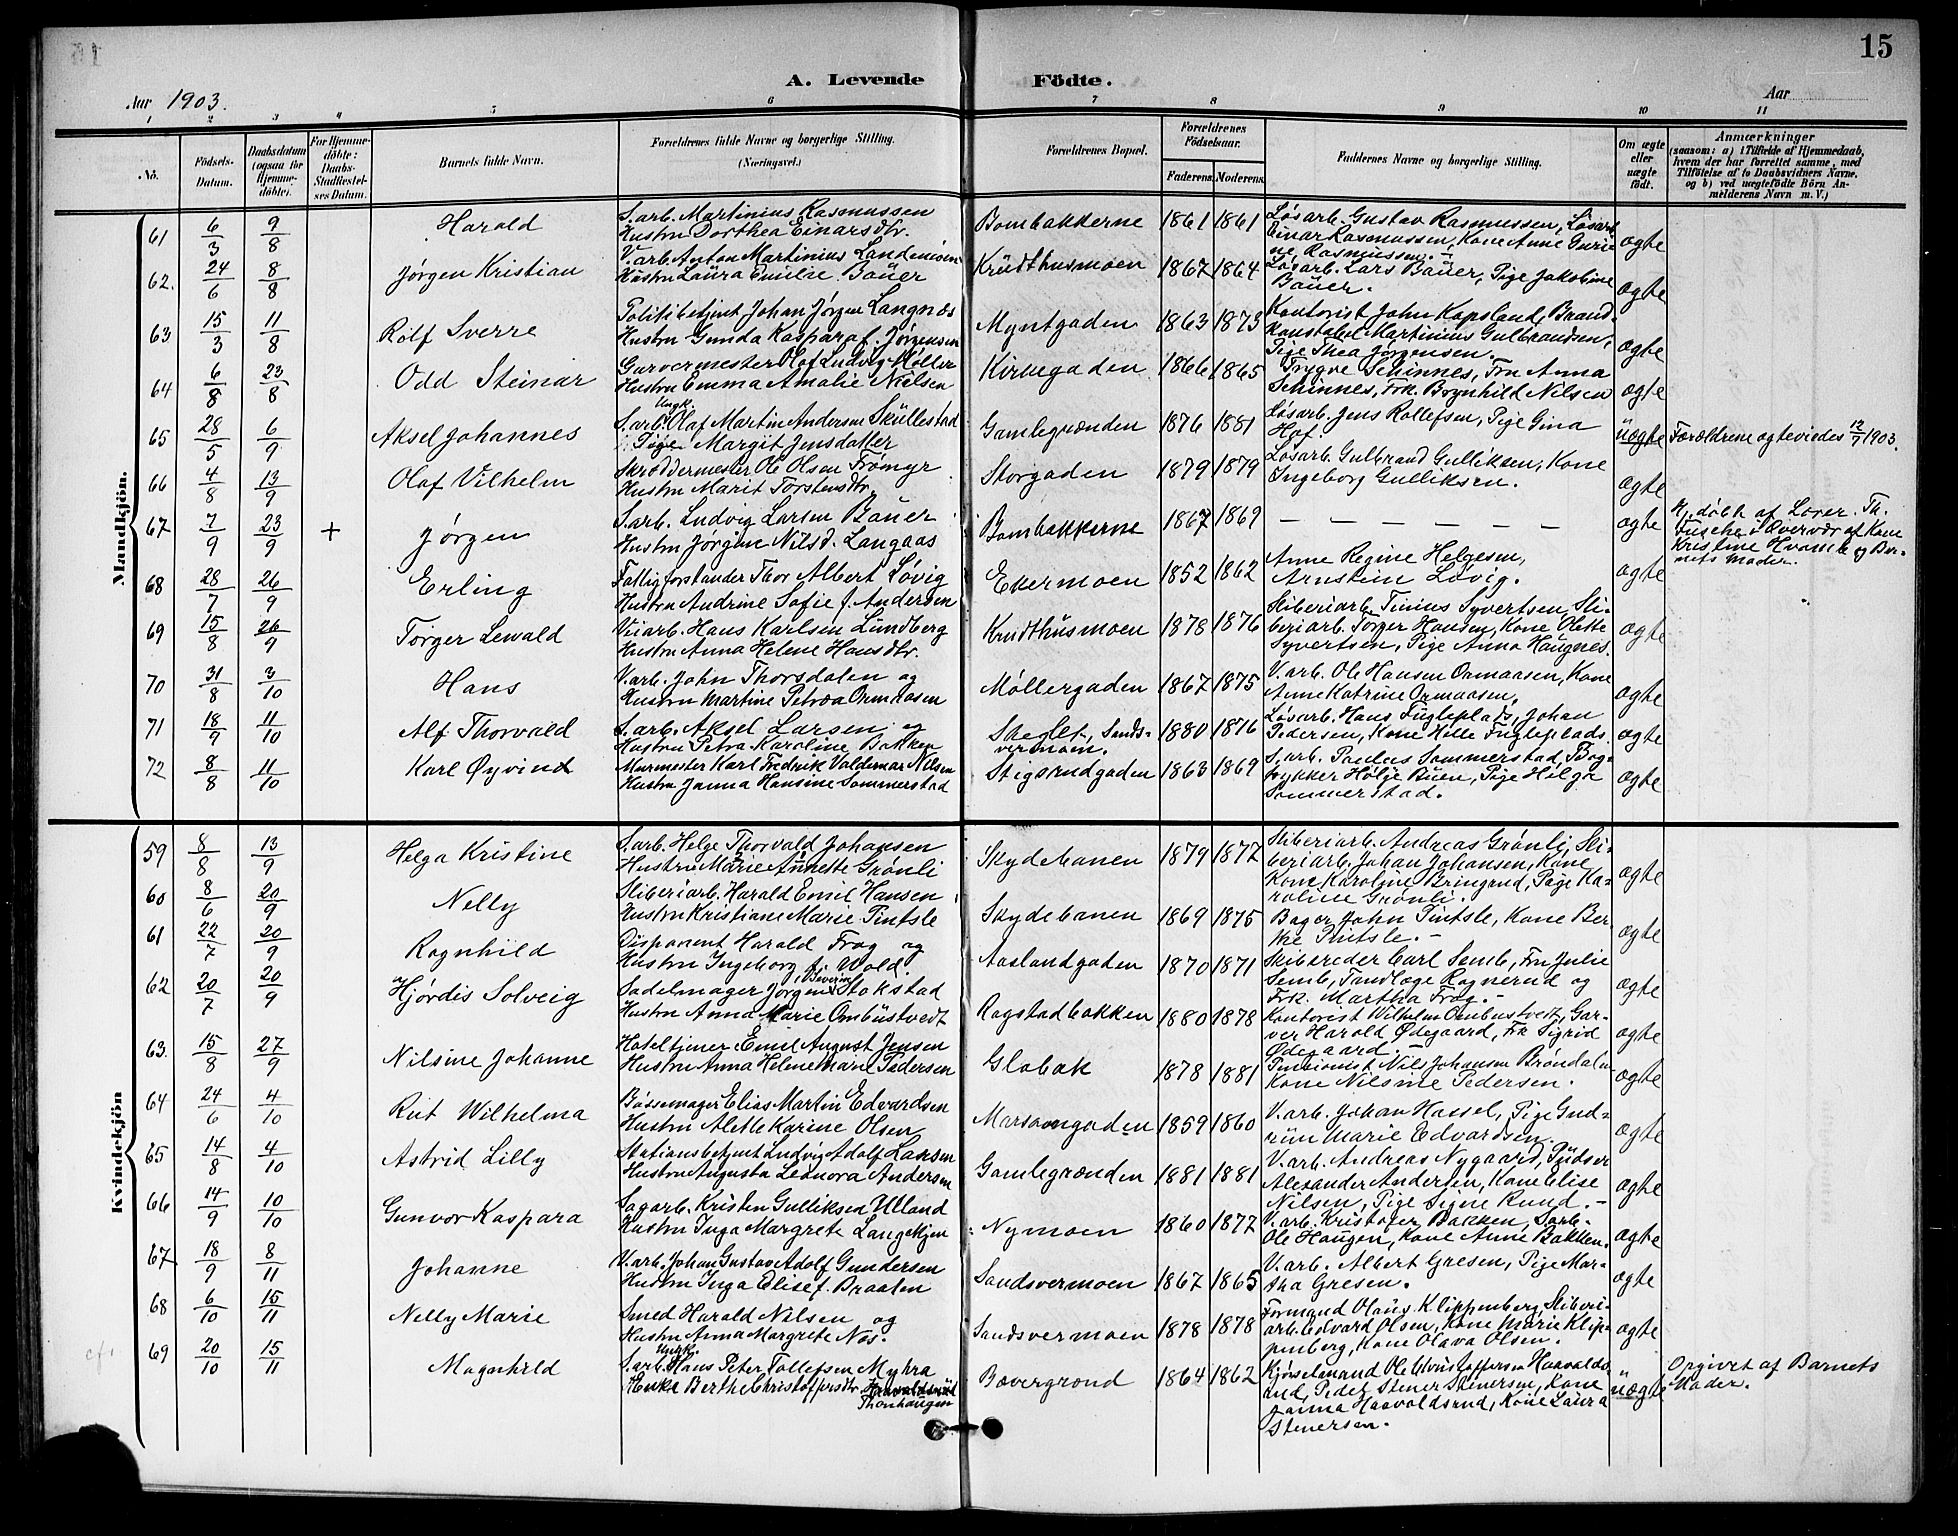 15
A. Levende Födte.
Aar 1903.
Aar
1 2 3 4 5 6 7 8 9 10 11
No.
Födsels-Datum.
Daabsdatum (ogsaa for Hjemme-döbte).
For Hjemme-döbte: Daabs-Stadfæstel-ses Datum.
Barnets fulde Navn.
Forældrenes fulde Navne og borgerlige Stilling. (Næringsvei.)
Forældrenes Bopæl.
Forældrenes Födselsaar.
Faderens. Moderens.
Faddernes Navne og borgerlige Stilling.
Om ægte eller uægte födt.
Anmærkninger
(saasom: a) i Tilfælde af Hjemmedaab, hvem der har forrettet samme, med Tilföielse af to Daabsvidners Navne, og b) ved uægtefödte Börn An-melderens Navn m. V.)
Mandkjön.
61 6/3 9/8 Harald
S.arb. Martinius Rasmussen
Hustru Dorthea Einarsdtr.
Bombakkerne 1861 1861
Løsarb. Gustav Rasmussen, Løsarb.
Einar Rasmussen, Kone Anne Guri-
ne Rasmussen.
ægte
62. 24/6 8/8 Jørgen Kristian
V.arb. Anton Martinius Landmisen
Hustru Laura Emilie Bauer
Krudthusmoen 1867 1864
Løsarb. Lars Bauer, Pige Jakobine
Bauer.
ægte
63 15/3 11/8 Rolf Sverre
Politibetjent Johan Jørgen Langnæs
Hustru Gunda Kaspara f. Jørgensen
Myntgaden 1863 1873
Kontorist John Kopsland, Brand-
konstabel Martinius Gulbrandsen,
Pige Thea Jørgensen.
ægte
64 6/8 23/8 Odd Steinar
Garvermester Olof Ludvig Møller
Hustru Emma Amalie Nielsen
Kirkegaden 1866 1865
Trygve Schinnes, Fru Anna
Schinnes, Frk. Brynhild Nilsen
ægte
65 28/5 6/9 Aksel Johannes
Ungk.
S.arb. Olaf Martin Andersen Skullestad
Pige Margit Jensdatter
Gamlegrænden 1876 1881
Løsarb. Jens Rollefsen, Pige Gina
Hof.
uægte
Forældrene ægteviedes 12/9 1903.
66 4/8 13/9 Olaf Vilhelm
Skræddermester Ole Olsen Frømyr
Hustru Marit Torstensdtr.
Storgaden 1879 1879
Løsarb. Gulbrand Gulliksen, Kone
Ingeborg Gulliksen.
ægte
67 7/9 23/9 + Jørgen
S.arb. Ludvig Larsen Bauer
Hustru Jørgine Nilsd. Langaas
Bombakkerne 1867 1869
— — — — — — —
ægte
Hj.døbt af Lærer Th.
Kristine
nets Moder.
68 28/7 26/9 Erling
Fattigforstander Thor Albert Løvig
Hustru Andrine Sofie f. Andersen
Ekermoen 1852 1862
Anne Regine Helgesen,
Arnstein Løvig.
ægte
69 15/8 26/9 Torger Lewald
Veiarb. Hans Karlsen Lundberg
Hustru Anna Helene Hansdtr.
Krudthusmoen 1878 1876
Sliberiarb. Tinius Syvertsen, Sli-
beriarb. Torger Hansen, Kone Olette
Syvertsen, Pige Anna Haugnes.
ægte
70 31/8 3/10 Hans
V.arb. John Thorsdalen og
Hustru Martine Petrea Ormaasen
Møllergaden 1867 1875
V.arb. Ole Hansen Ormaasen, Kone
Anne Katrine Ormaasen,
ægte
71 18/9 11/10 Alf Thorvald
S.arb. Aksel Larsen og
Hustru Petra Karoline Bakken
Sands-
vermoen. 1880 1876
Løsarb. Hans Fugleplads, Johan
Pedersen, Kone Helle Fugleplads.
ægte
72 8/8 11/10 Karl Øyvind
Murmester Karl Fredrik Valdemar Nilsen
Hustru Janna Hansine Sommerstad
Stigerudgaden 1863 1869
S.arb. Paulus Sommerstad, Bog-
trykker Helje Buen, Pige Helga
Sommerstad.
ægte
Kvindekjön
59 8/8 13/9 Helga Kristine
S.arb. Helge Thorvald Johansen
Hustru Marie Annette Grønli
Skydebanen 1879 1877
Sliberiarb. Andreas Grønli, Sli-
beriarb. Johan Johansen, Kone
Kone Karoline Bringerud, Pige Ka-
roline Grønli.
ægte
60 8/6 20/9 Nelly
Sliberiarb. Harald Emil Hansen
Hustru Kristiane Marie Pintsle
Skydebanen 1869 1875
Bager John Pintsle, Kone Ber-
the Pintsle.
ægte
61 22/7 20/9 Ragnhild
Disponent Harald Frog og
Hustru Ingeborg f. Wold.
Aaslandgaden 1870 1871
Skibsreder Carl Semb, Fru Julie
Semb, Tandlæge Ragnerud og
Frk. Martha Frog.
ægte
62 20/7 20/9 Hjørdis Solveig
Severin
Sadelmager Jørgen Stokstad
Hustru Anna Marie Ombustvedt
Rogstadbakken 1880 1878
Kontorist Wilhelm Ombustvedt, Gar-
ver Harald Ødegaard, Frk Sigrid
Ødegaard.
ægte
63. 15/8 27/9 Nilsine Johanne
Hoteltjener Emil August Jensen
Hustru Anna Helene Marie Pedersen
Glabak 1878 1881
Pensionist Nils Johansen Brøndalen
Kone Nilsine Pedersen.
ægte
64 24/6 4/10 Rut Wilhelma
Bøssemager Elias Martin Edvardsen
Hustru Alette Karine Olsen
1859 1860
V.arb. Johan Hassel, Pige Gud-
run Marie Edvardsen.
ægte
65 14/8 4/10 Astrid Lilly
Stationsbetjent Ludvig Adolf Larsen
Hustru Augusta Leonora Andersen
Gamlegrænden 1881 1881
V.arb. Andreas Nygaard, Pudser
Alexander Andersen, Kone Elise
Nilsen, Pige Signe Rund.
ægte
66 14/9 10/10 Gunvor Kaspara
Sagarb. Kristen Gulliksen Ulland
Hustru Inga Margrete Langekjen
Nymoen 1860 1877
V.arb. Kristofer Bakken, S.arb.
Ole Haugen, Kone Anne Bakken.
ægte
67 18/9 8/11 Johanne
V.arb. Johan Gustav Adolf Gundersen
Hustru Inga Elise f. Braaten
Sandsvermoen 1867 1865
V.arb. Albert Gresen, Pige Mar-
tha Gresen.
ægte
68 6/10 15/11 Nelly Marie
Smed Harald Nilsen og
Hustru Anna Margrete Næs.
Sandsvermoen 1878 1878
Formand Olaus Klippenberg, Sliberi-
arb. Edvard Olsen, Kone Marie Klip-
penberg, Kone Olava Olsen.
ægte
69 20/10 15/11 Magnhild
Ungk.
S.arb. Hans Peter Tollefsen Myhra
Enke Berthe Christoffersdtr.
Thorshaugen
Bævergrænd 1864 1862
Ole Christoffersen Haavalds-
rud, Peder Stener Stenersen, Kone
Janna Haavaldsrud, Kone Laura
Stenersen.
uægte
Opgivet af Barnets
Moder.